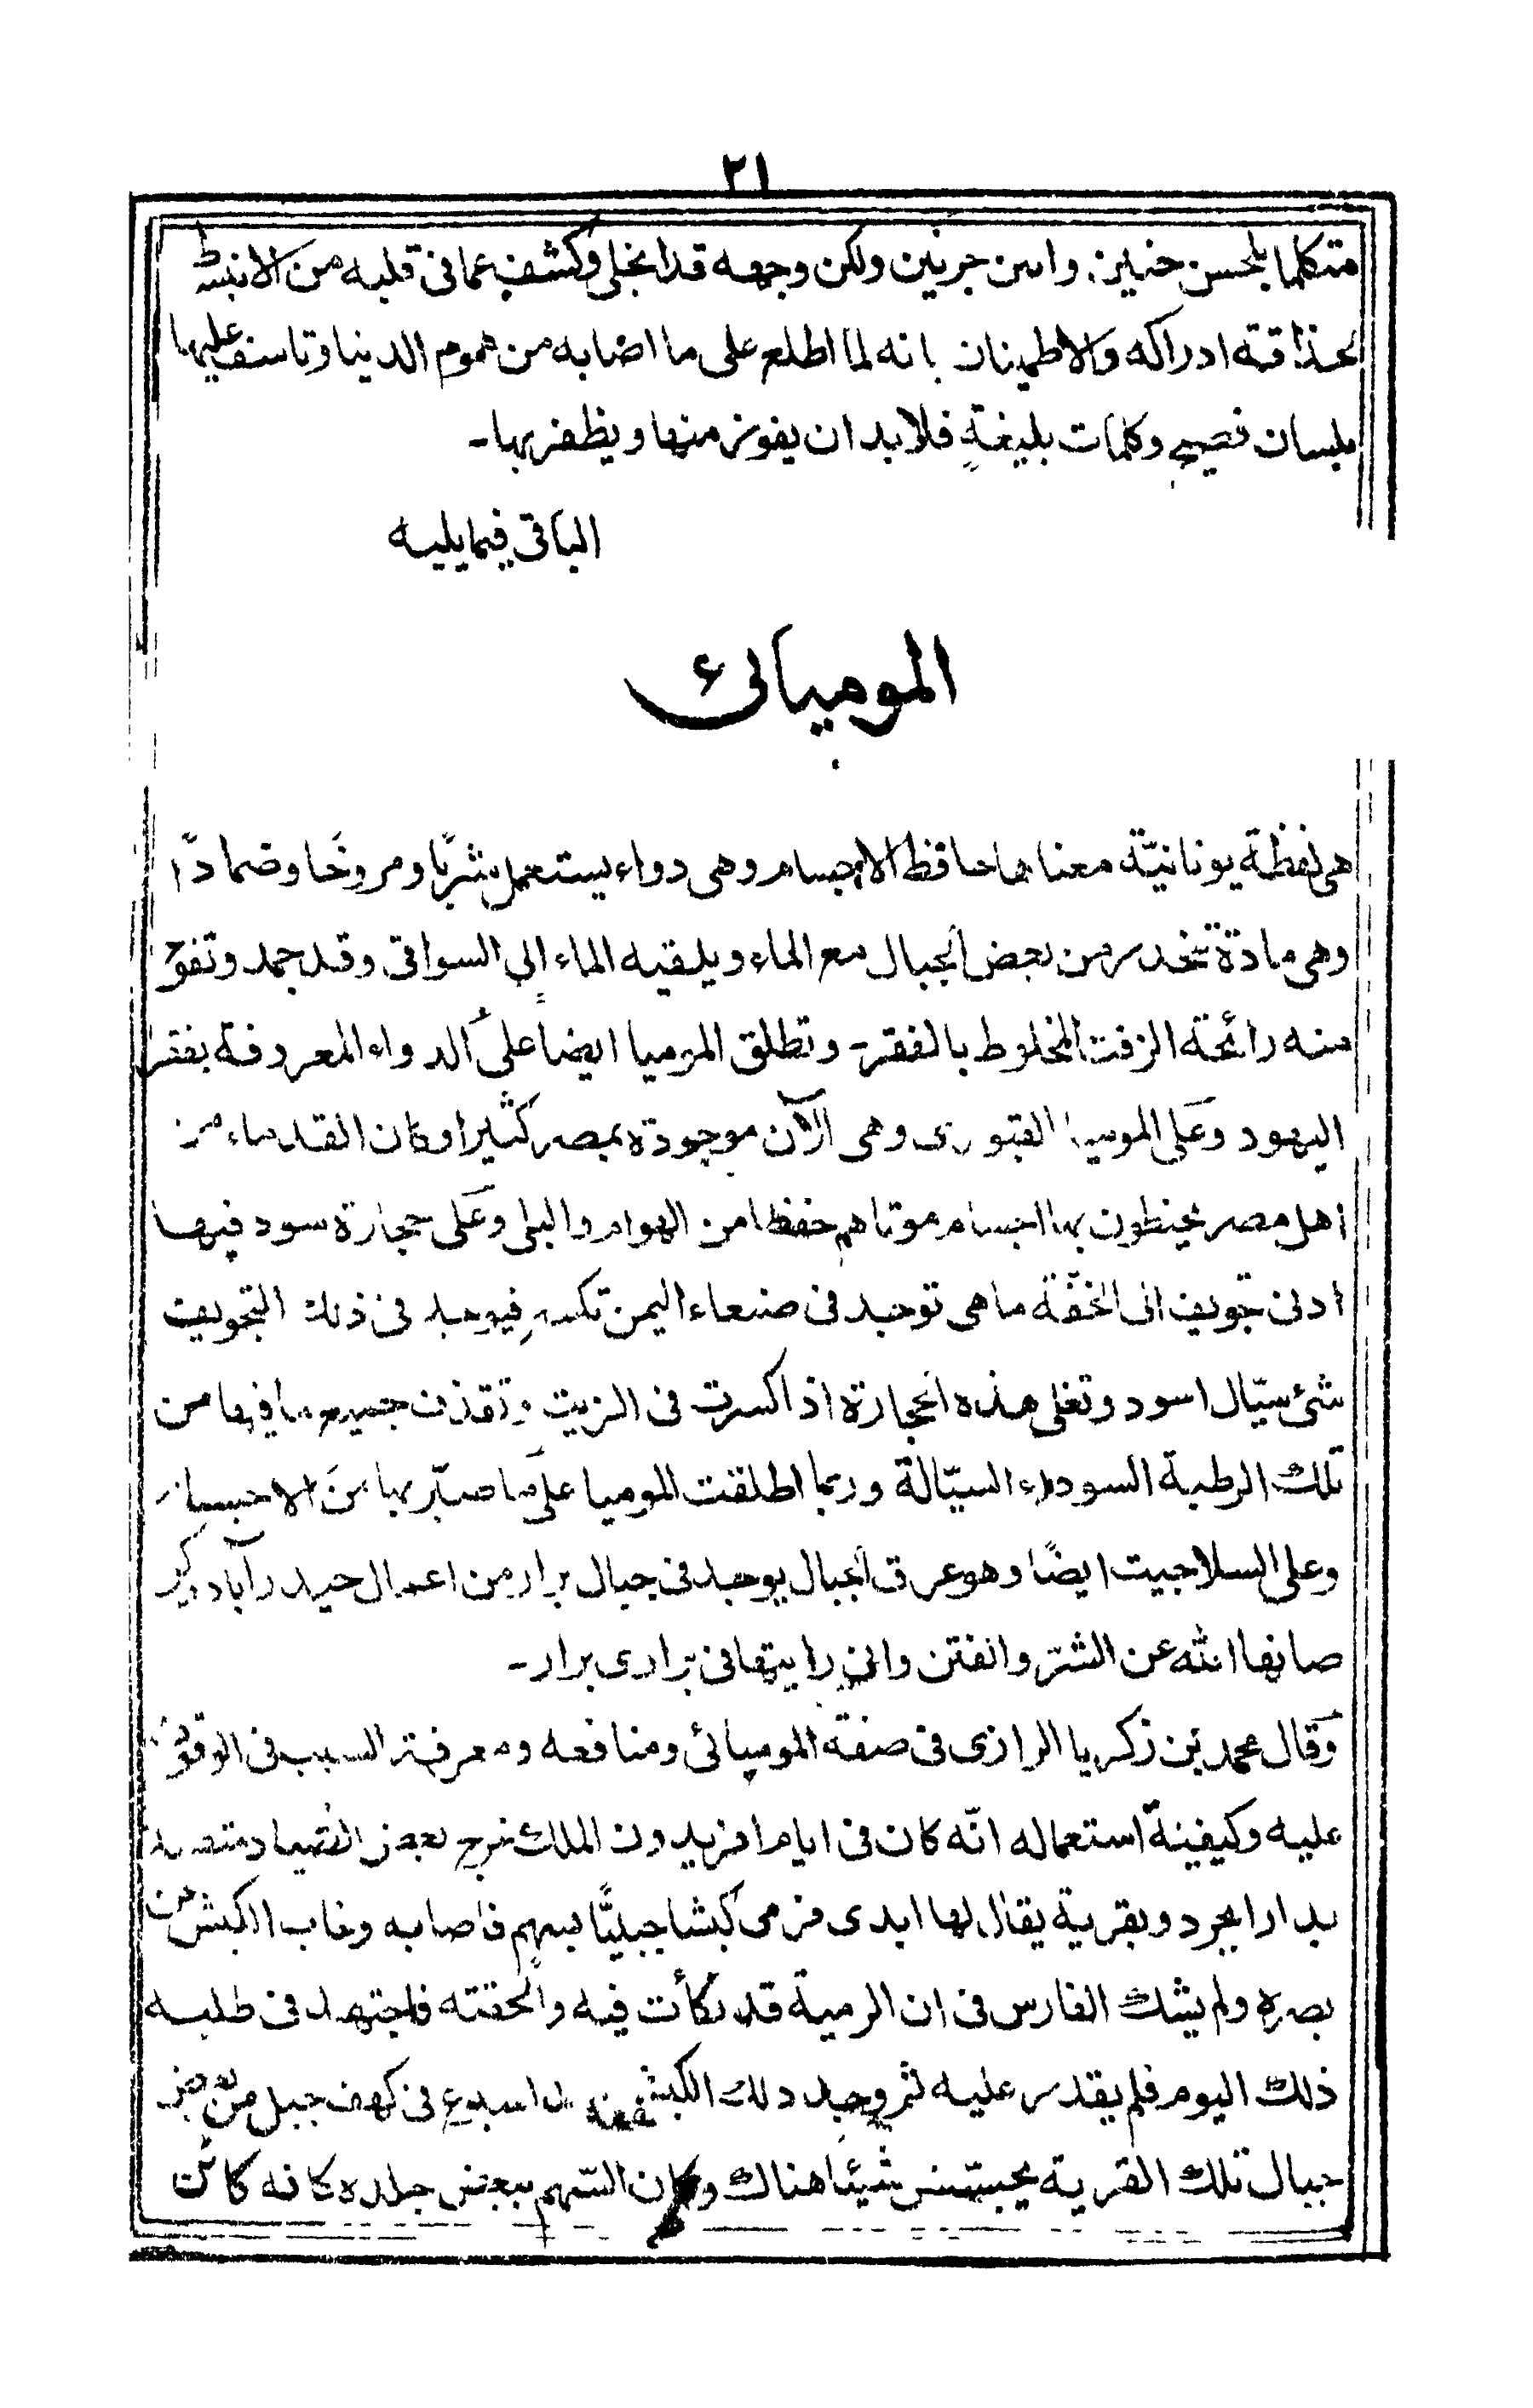 ٢١
متكلما بلحسن حنين وانين جرين ولكن وجهه قد انجلى وكشف عما فى قلبه من الانبساط
لحذاقته ادراكه والاطمينان بانه لما اطلع على ما اصابه من هموم الدنيا وتاسف عليها
بلسان فصيح وكلمات بليغةٍ فلا بد ان يفوز منها ويظفر بها ـ
الباقى فيما يليه
الموميائ
هى لفظة يونانيّة معناها حافظ الاجسام وهى دواء يستعمل شربًا ومروخًا وضمادًا
وهى مادة تنحدر من بعض الجبال مع الماء ويلقيه الماء الى السواقى وقد جمد وتفوح
منه رائحة الزفت المخلوط بالقفر ـ وتطلق الموميا ايضا على الدواء المعروفة بقفر
اليهود وعلى الموميا القبورى وهى الآن موجودة بمصر كثيرا وكان القدماء من
اهل مصر يحنطون بها اجسام موتاهم حفظا من الهوام والبلى وعلى حجارة سود فيها
ادنى تجويف الى الخفّة ما هى توجد فى صنعاء اليمن تكسر فيوجد فى ذلك التجويف
شئ سيّال اسود وتغلى هذه الحجارة اذا كسرت فى الزيت وتقذف جميع ما فيها من
تلك الرطبة السوداء السيّالة وربما اطلقت الموميا على ما صبّر بها من الاجسام
وعلى السلاجيت ايضًا وهو عرق الجبال يوجد فى جبال برار من اعمال حيدرآباد دكن
صانها الله عن الشرّ والفتن وانى رايتها فى برارى برار ـ
وقال محمد بن زكريا الرازى فى صفة الموميائى ومنافعه ومعرفة السبب فى الوقوف
عليه وكيفيته استعماله انّه كان فى ايام افريدون الملك خرج بعض الفتيا دمتصيدا
بدارابجرد وبقرية يقال لها ابدى فرمى كبشا جبليًّا بسهم فاصابه وغاب الكبش عن
بصره ولم يشك الفارس فى ان الرمية قد نكأت فيه والحقته فاجتهد فى طلبه
ذلك اليوم فلم يقدر عليه ثم وجد ذلك الكبش اسبوع فى كهف جبل من بعض
جبال تلك القرية شيئا هناك وكان السّهم ببعض جلده كانه كان